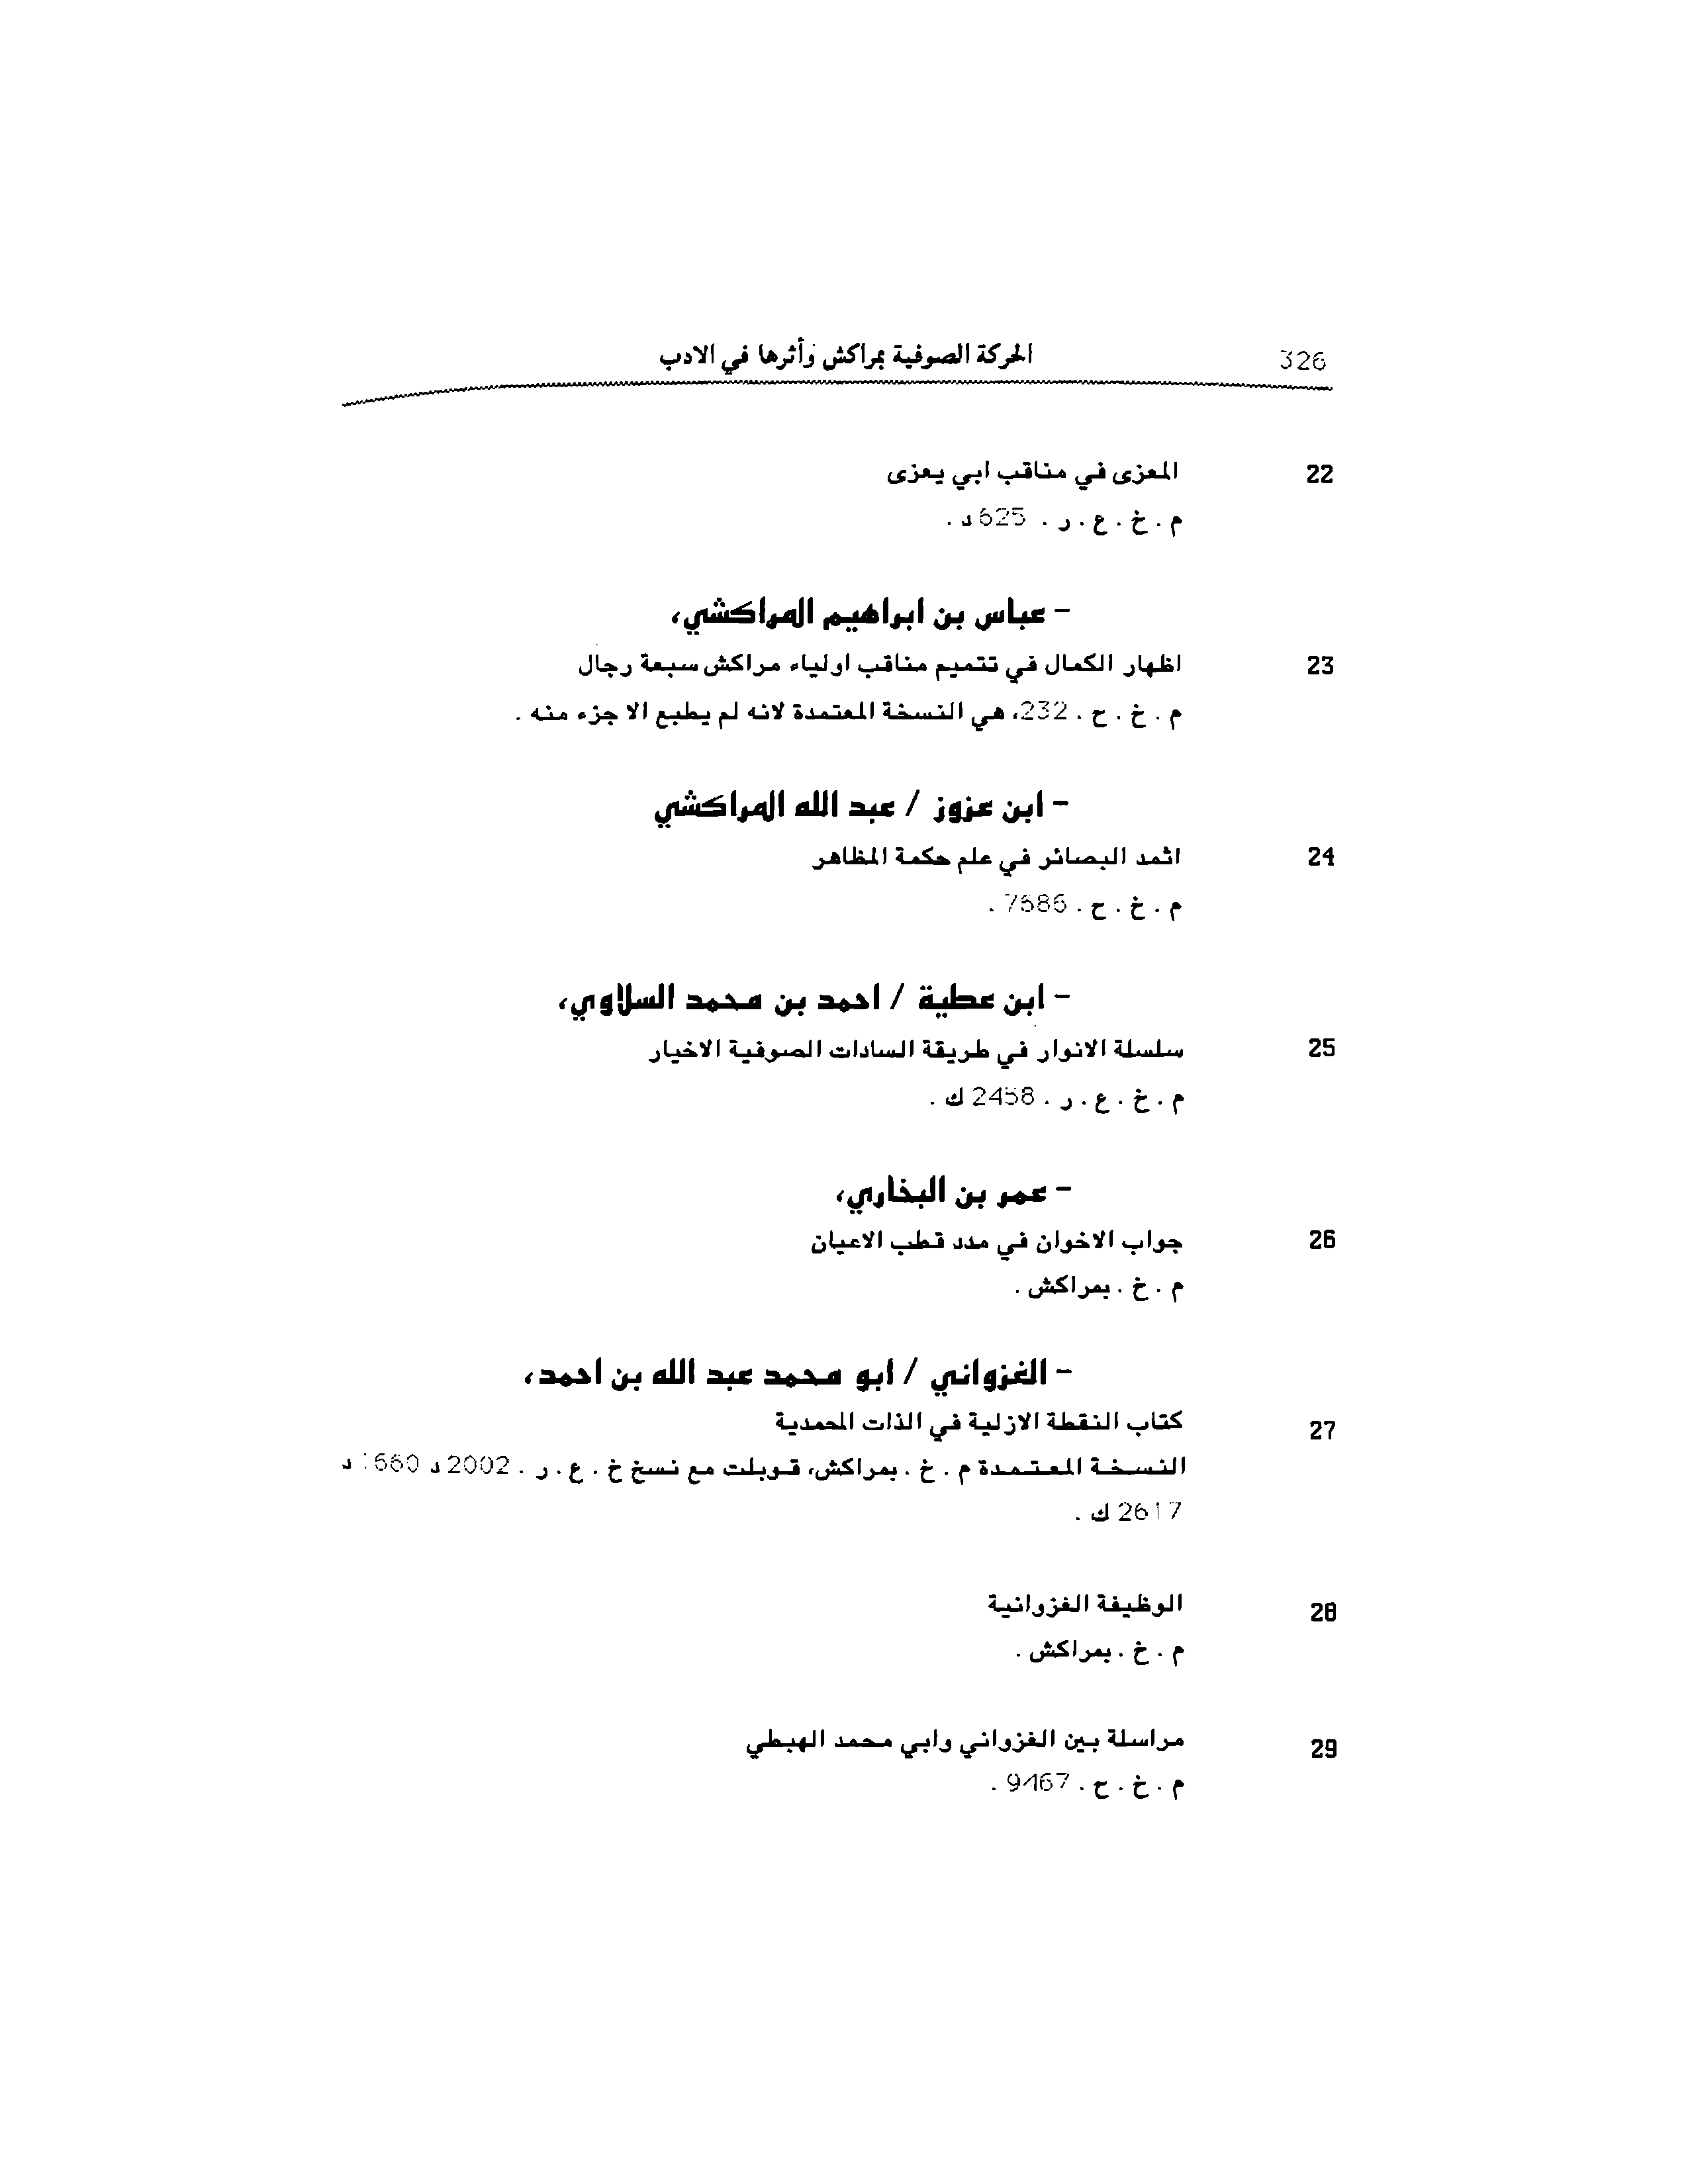 326 الحركة الصوفية بمراكش وأثرها في الادب
22 المعزى في مناقب ابي يعزى
م . خ . ع . ر . 625 د .
- عباس بن ابراهيم المراكشي،
23 اظهار الكمال في تتميم مناقب اولياء مراكش سبعة رجال
م . خ . ح . 232، هي النسخة المعتمدة لانه لم يطبع الا جزء منه .
- ابن عزوز / عبد الله المراكشي
24 اثمد البصائر في علم حكمة المظاهر
م . خ . ح . 7686 .
- ابن عطية / احمد بن محمد السلاوي،
25 سلسلة الانوار في طريقة السادات الصوفية الاخيار
م . خ . ع . ر . 2458 ك .
- عمر بن البخاري،
26 جواب الاخوان في مدد قطب الاعيان
م . خ . بمراكش .
- الغزواني / ابو محمد عبد الله بن احمد،
27 كتاب النقطة الازلية في الذات المحمدية
النسخة المعتمدة م . خ . بمراكش، قوبلت مع نسخ خ . ع . ر . 2002 د 1660 د
2617 ك .
28 الوظيفة الغزوانية
م . خ . بمراكش .
29 مراسلة بين الغزواني وابي محمد الهبطي
م . خ . ح . 9467 .